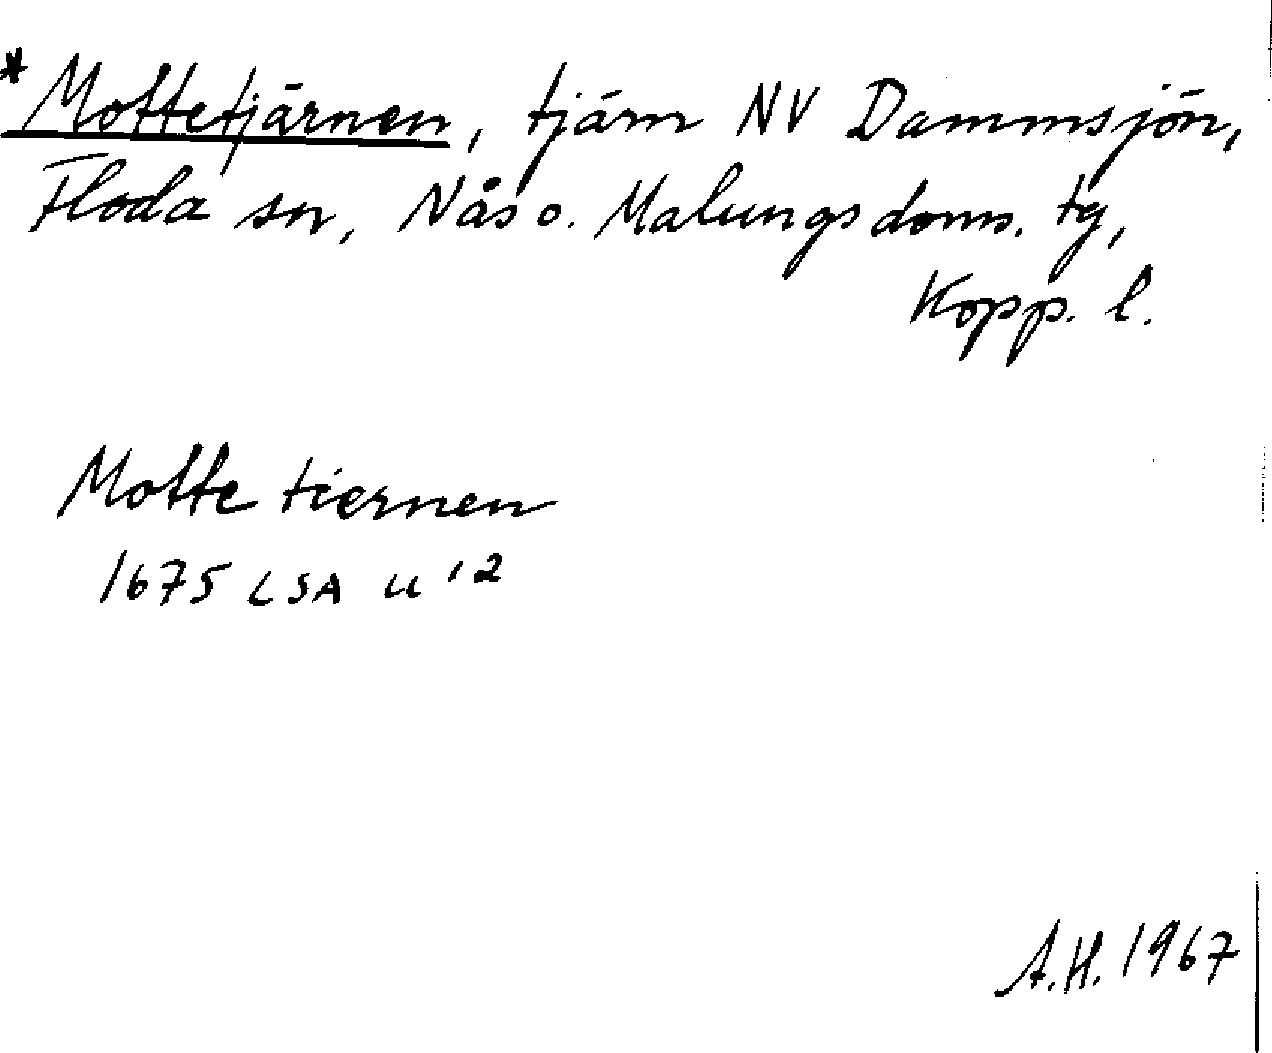 *Mottetjärnen, tjärn NV Dammsjön,
Floda sn, Nås o. Malungs doms. tg,
Kopp. l.
Motte tiernen
1675 LSA U '2
A.H. 1967